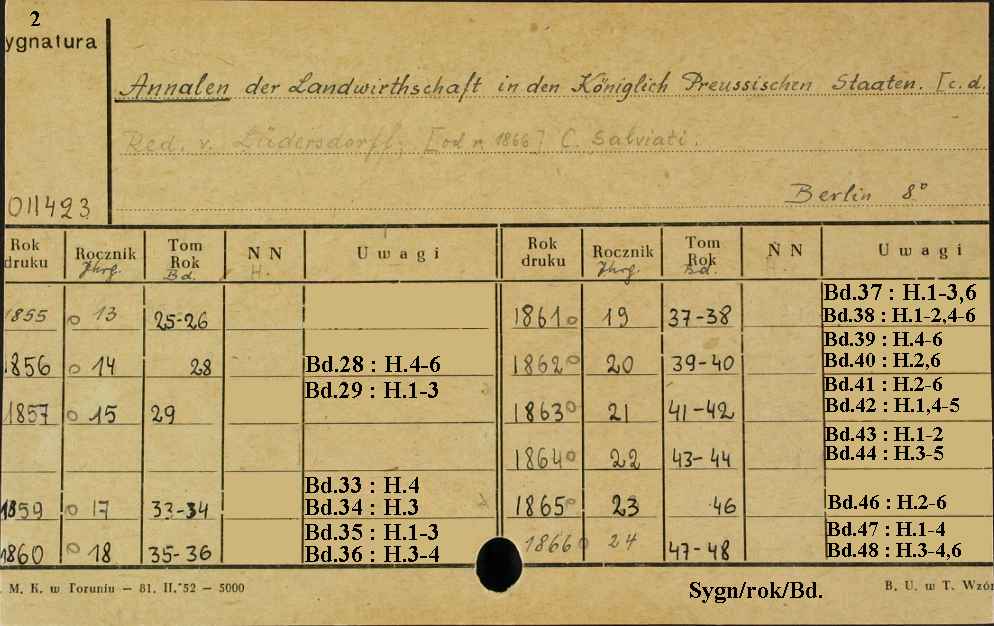 2
ygnatura
Annalen der Landwirthschaft in den Königlich Preussischen Staaten. [c.d.
Red. v. Lüdersdorff; [od r. 1866] C. Salviati.
Berlin 8°
011423
Rok druku Rocznik Jhrg. Tom Rok Bd. N N H. Uwagi
1855 o 13 25-26
1856 o 14 28 Bd.28 : H.4-6
1857 o 15 29 Bd.29 : H.1-3
1859 o 17 33-34 Bd.33 : H.4
Bd.34 : H.3
1860 o 18 35-36 Bd.35 : H.1-3
Bd.36 : H.3-4
Rok druku Rocznik Jhrg. Tom Rok Bd. N N Uwagi
1861 o 19 37-38 Bd.37 : H.1-3,6
Bd.38 : H.1-2,4-6
1862 o 20 39-40 Bd.39 : H.4-6
Bd.40 : H.2,6
1863 o 21 41-42 Bd.41 : H.2-6
Bd.42 : H.1,4-5
1864 o 22 43-44 Bd.43 : H.1-2
Bd.44 : H.3-5
1865 o 23 46 Bd.46 : H.2-6
1866 o 24 47-48 Bd.47 : H.1-4
Bd.48 : H.3-4,6
. M. K. w Toruniu — 81. II. '52 — 5000
Sygn/rok/Bd.
B. U. w T. Wzór